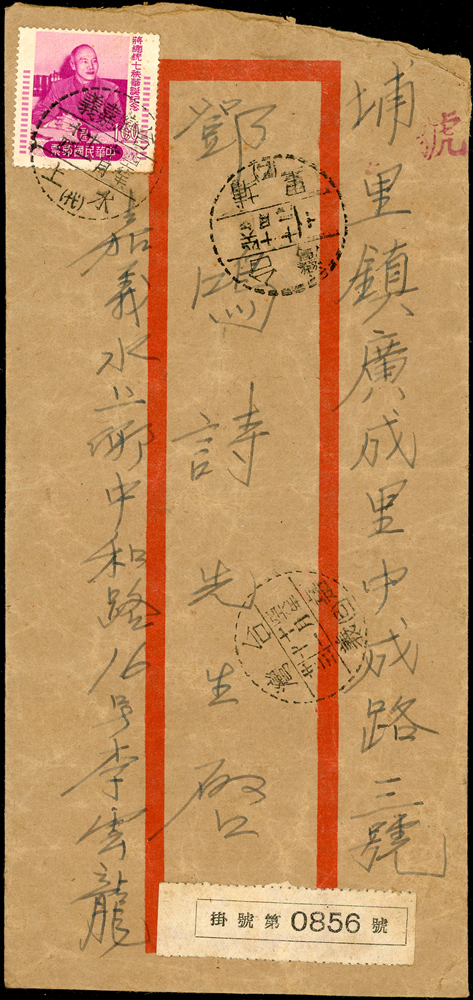 埔里鎮廣成里中成路三號
鄧鴻詩先生啟
嘉義水上鄉中和路16号李雲龍
蔣總統七秩華誕紀念
160
中華民國郵票
掛號第 0856 號
號